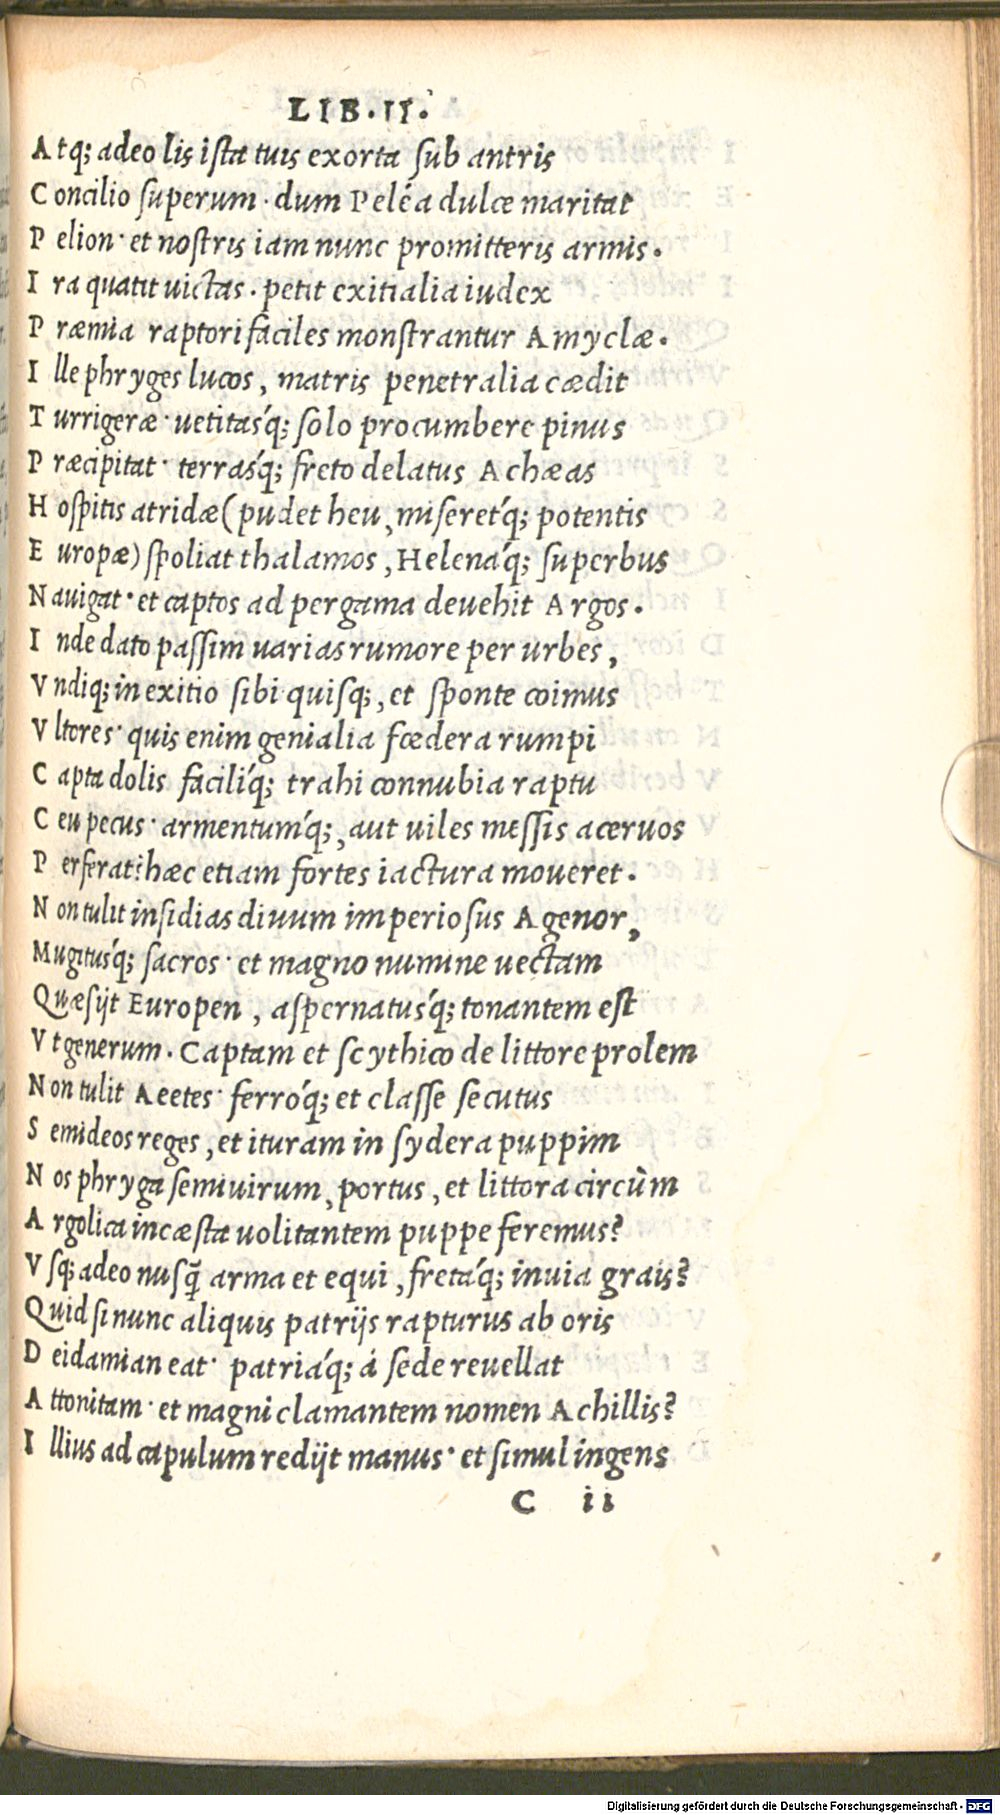 LIB.II.
Atq; adeo lis ista tuis exorta sub antris
Concilio superum· dum Peléa dulce maritat
Pelion· et nostris iam nunc promitteris armis.
Ira quatit uictas. petit exitialia iudex
Præmia raptori faciles monstrantur Amyclæ.
Ille phryges lucos, matris penetralia cædit
Turrigeræ· uetitasq́; solo procumbere pinus
Præcipitat· terrasq́; freto delatus Achæas
Hospitis atridæ (pudet heu, miseretq́; potentis
Europæ) spoliat thalamos, Helenaq́; superbus
Nauigat· et captos ad pergama deuehit Argos.
Inde dato passim uarias rumore per urbes,
Vndiq; in exitio sibi quisq;, et sponte coimus
Vltores· quis enim genialia fœdera rumpi
Capta dolis faciliq́; trahi connubia raptu
Ceu pecus· armentumq́;, aut uiles messis aceruos
Perferat? hæc etiam fortes iactura moueret.
Non tulit insidias diuum imperiosus Agenor,
Mugitusq́; sacros· et magno numine uectam
Quæsijt Europen, aspernatusq́; tonantem est
Vt generum. Captam et scythico de littore prolem
Non tulit Aeetes· ferroq́; et classe secutus
Semideos reges, et ituram in sydera puppim
Nos phryga semiuirum, portus, et littora circùm
Argolica incæsta uolitantem puppe feremus?
Vsq; adeo nusq̃ arma et equi, fretaq́; inuia grais?
Quid si nunc aliquis patrijs rapturus ab oris
Deidamian eat· patriaq́; á sede reuellat
Attonitam· et magni clamantem nomen Achillis?
Illius ad capulum redijt manus· et simul ingens
C ii
Digitalisierung gefördert durch die Deutsche Forschungsgemeinschaft - DFG